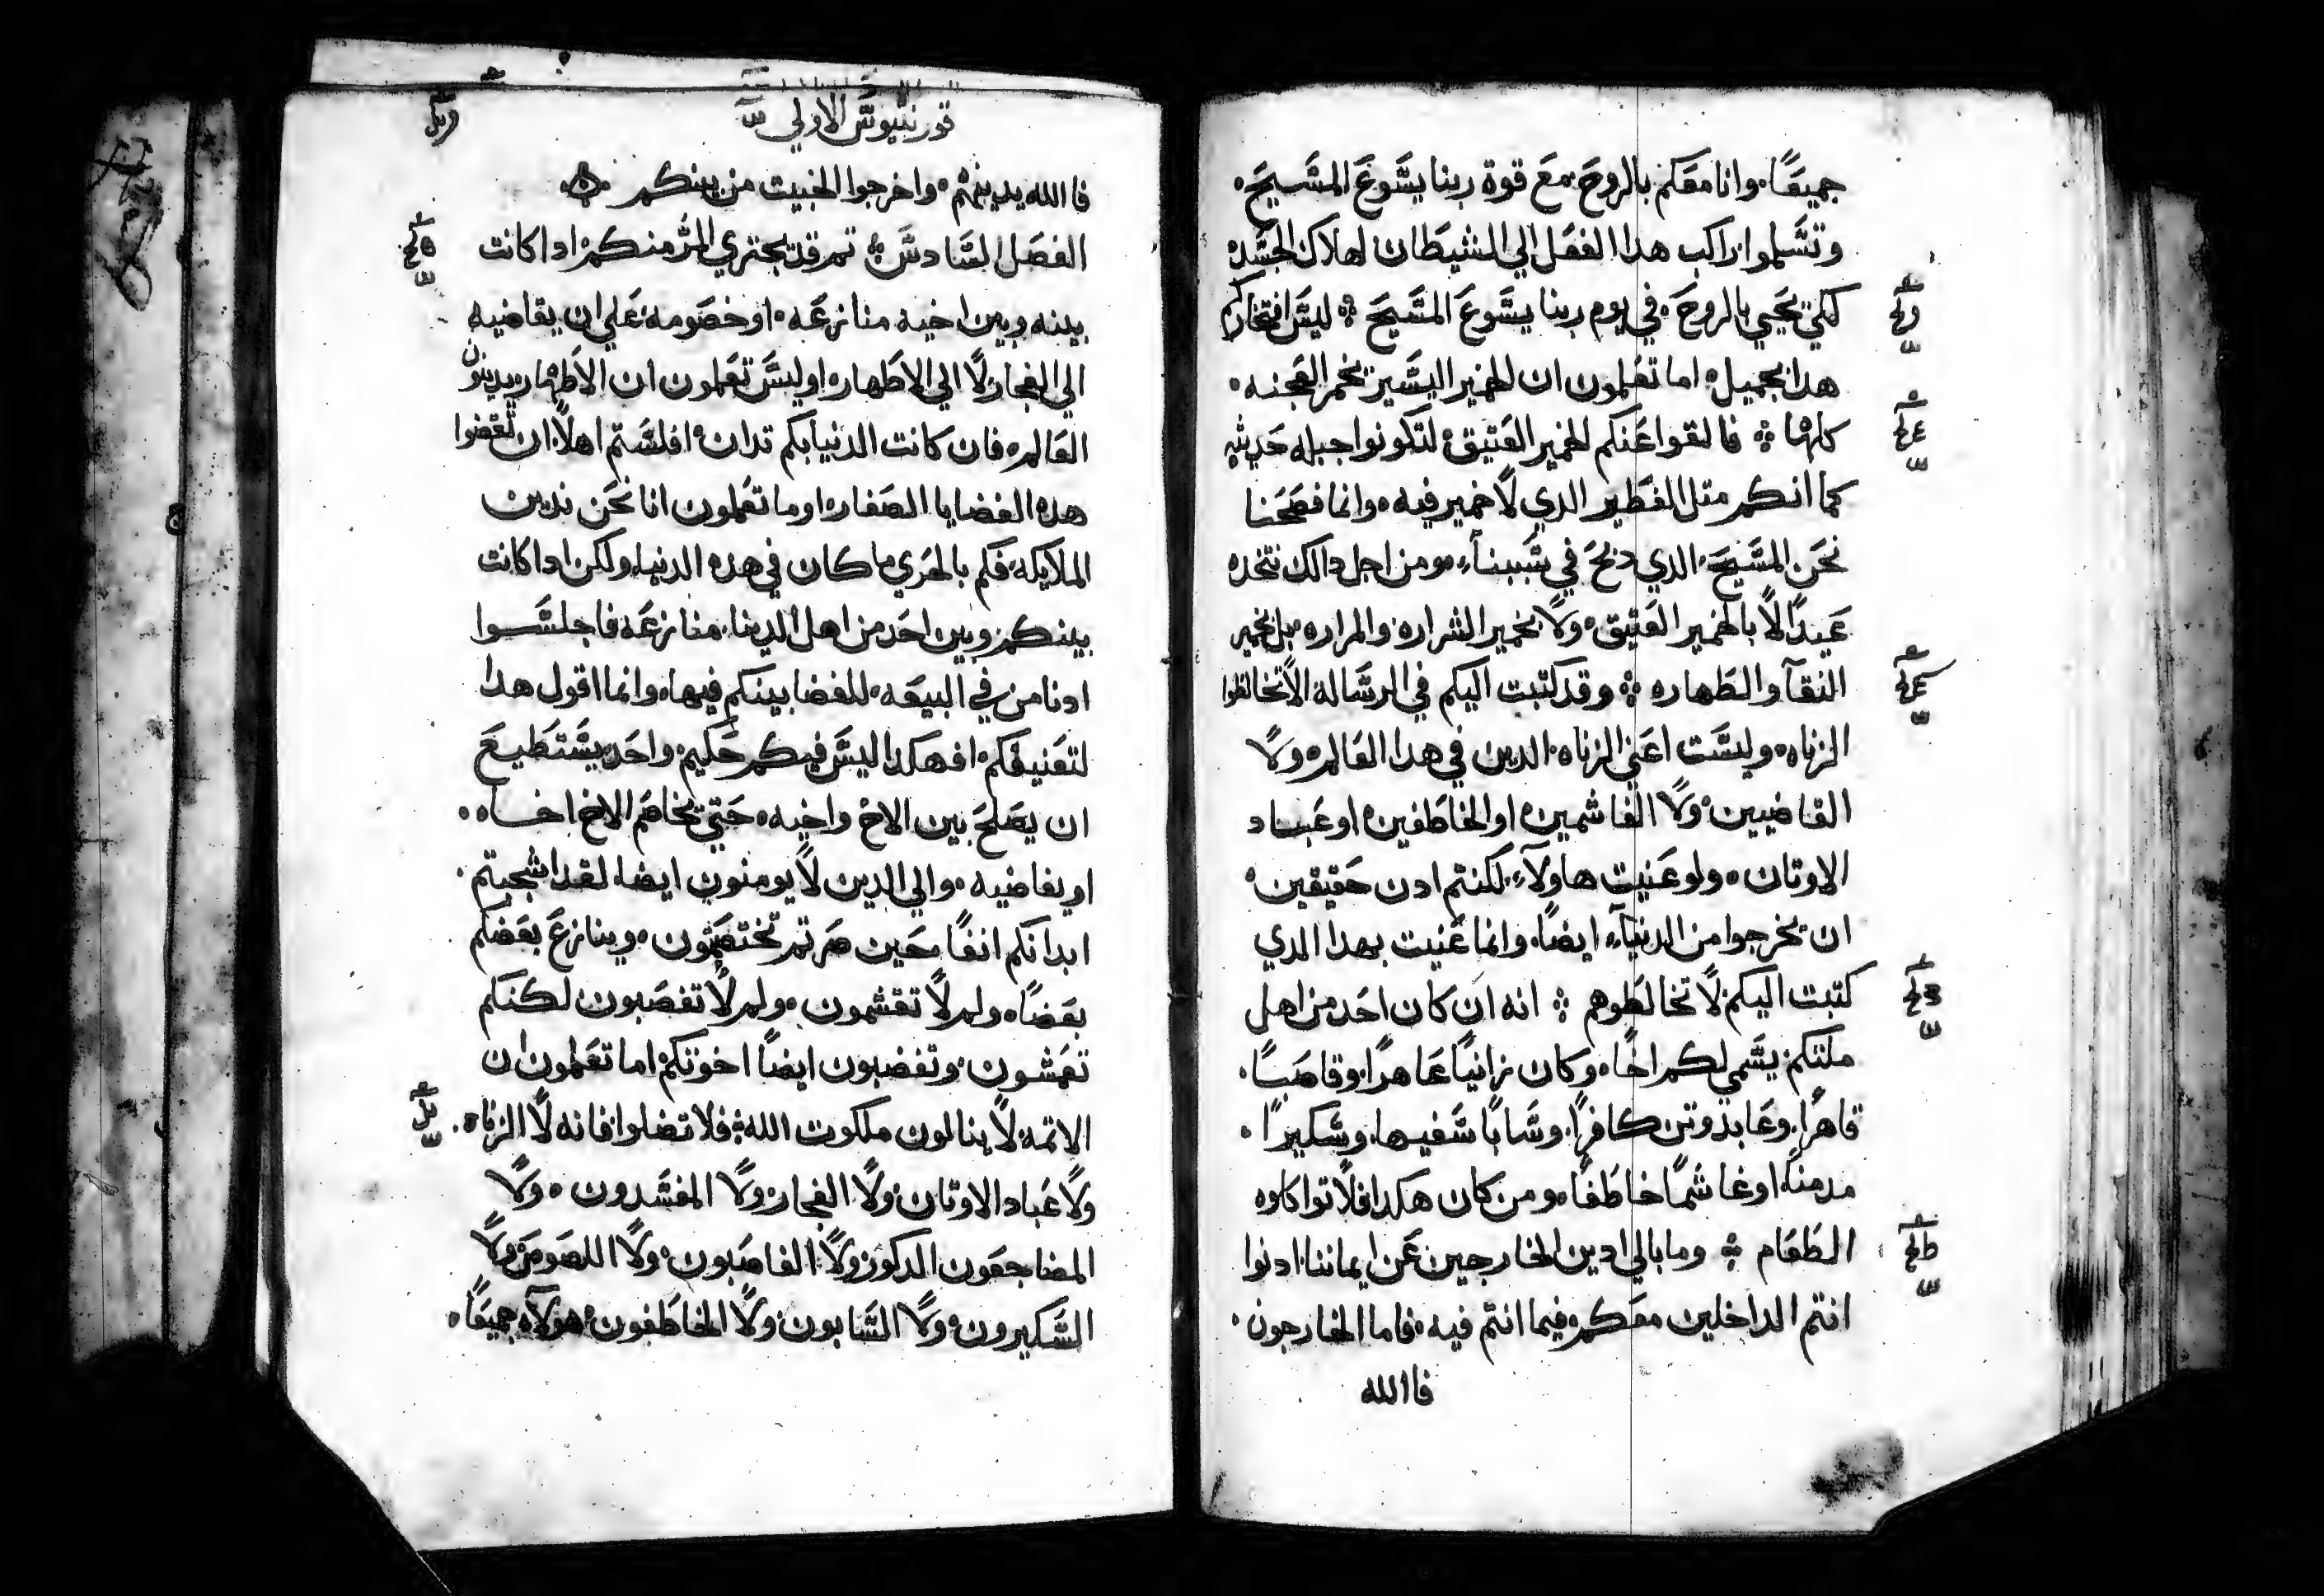 جميعًا. وانا معكم بالروح مع قوة ربنا يسوع المسيح.
وتسلموا راكب هدا الفعل الي الشيطان لهلاك الجسد
لكي تحيي بالروح. في يوم ربنا يسوع المسيح ܀ ليس افتخاركم
هدا بجميل. اما تعلمون ان الخمير اليسير يخمر العجنه.
كلها ܀ فالقوا عنكم الخمير العتيق. لتكونوا جبله حديثه
كما انكم متل الفطير الدي لا خمير فيه. وانما فصحنا
نحن المسيح. الدي دبح في سببنآ. ومن اجل دالك نتخده
عيدًا لا بالخمير العتيق. ولا بخمير الشراره والمراره. بل بخمير
النقآ والطهاره ܀ وقد كتبت اليكم في الرساله الا تخالطوا
الزناه. وليست اعني الزناه. الدين في هدا العالم. ولا
القاضيين. ولا الغاشمين. او الخاطفين. او عباد
الاوتان. ولو عنيت هاولآء. لكنتم ادن حقيقين.
ان تخرجوا من الدنيآء ايضا. وانما عنيت بهدا الدي
كتبت اليكم لا تخالطوهم ܀ انه ان كان احد من اهل
ملتكم يسمي لكم اخًا. وكان زانيًا عاهرًا. وغاصبًا.
قاهرًا. وعابد وتن كافرًا. وسابًا سفيها. وسكيرًا.
مدمنًا. او غاشمًا خاطفًا. ومن كان هكدا فلا تواكلوه
الطعام ܀ وما بالي ادين الخارجين عن ايماننا. ادنوا
انتم الداخلين معكم. فيما انتم فيه. فاما الخارجون.
فاالله
قورنتيوس الاولي
فاالله يدينهم. واخرجوا الخبيت من بينكم
الفصل السادس ܀ تم قد يجتري المر منكم. ادا كانت
بينه وبين اخيه منازعه. او خصومه. علي ان يقاضيه
الي الفجار. لا الي الاطهار. اوليس تعلمون ان الاطهار يدينون
العالم. فان كانت الدنيا بكم تدان. افلستم اهلاً ان تقضوا
هده القضايا الصغار. او ما تعلمون انا نحن ندين
الملايكه. فكم بالحري ما كان في هده الدنيا. ولكن ادا كانت
بينكم وبين احد من اهل الدينا. منازعه فاجلسوا
ادنا من في البيعه. للقضا بينكم فيها. وانما اقول هدا
لتعنيفكم. افهكدا ليس فيكم حكيم. واحد يستطيع
ان يصلح بين الاخ واخيه. حتي يخاصم الاخ اخاه.
او يقاضيه. والي الدين لا يومنون ايضا. لقد اشجبتم.
ابدانكم انفًا. حين صرتم تختصمون. وينازع بعضكم
بعضًا. ولم لا تغشمون. ولم لا تغصبون لكنكم
تغشون. وتغضبون ايضًا اخوتكم. اما تعلمون ان
الاتمه. لا ينالون ملكوت الله܀ فلا تضلوا. فانه لا الزناه.
ولا عباد الاوتان. ولا الفجار. ولا المفسدون. ولا
المضاجعون الدكور. ولا الغاصبون. ولا اللصوص. ولا
السكيرون. ولا السابون. ولا الخاطفون. هولآء جميعًا.